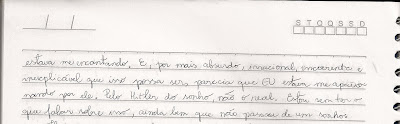 S T Q Q S S D
estava me encantando. E, por mais absurdo, irracional, incoerente e
inexplicável que isso possa ser, parecia que EU estava me apaixo-
nando por ele. Pelo Hitler do sonho, não o real. Estou sem ter o
que falar sobre isso, ainda bem que não passou de um sonho